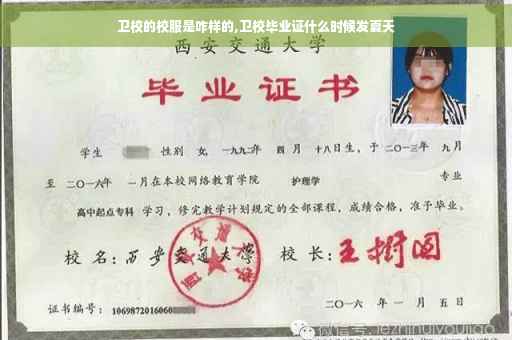 卫校的校服是咋样的,卫校毕业证什么时候发夏天
西安交通大学
毕业证书
学生 性别 女, 一九九二年 四月 十八日生, 于 二〇一三年 九月
至 二〇一六年 一月在本校网络教育学院 护理学 专业
高中起点专科 学习, 修完教学计划规定的全部课程, 成绩合格, 准予毕业。
校名: 西安交通大学 校长: 王树国
西安交通大学
证书编号: 1069872016060
二〇一六年 一月 五日
微信号: jiezhinuiyoujiao